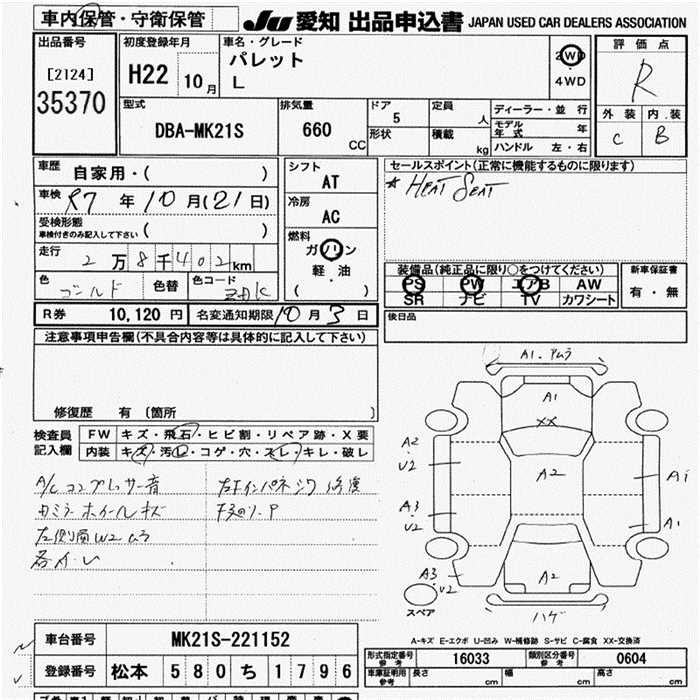 車内保管・守衛保管
JU 愛知 出品申込書 JAPAN USED CAR DEALERS ASSOCIATION
出品番号
[2124]
35370
初度登録年月
H22 10月
車名・グレード
パレット
L
2WD
4WD
評価点
R
外装 内装
C B
型式
DBA-MK21S
排気量
660 CC
ドア
5
形状
定員
人
積載
kg
ディーラー・並行
モデル年式 年
ハンドル 左・右
車歴
自家用・( )
車検 R7年10月(21日)
受検形態
車検付きのみ記入して下さい ( )
走行
2万8千402km
色 ゴールド 色替 色コード
シフト
AT
冷房
AC
燃料
ガソリン
軽・油
( )
セールスポイント(正常に機能するものに限ります)
★ HEAT SEAT
装備品(純正品に限り○をつけてください)
PS PW エアB AW
SR ナビ TV カワシート
新車保証書
有・無
R券 10,120円 名変通知期限 10月3日
後日品
注意事項申告欄(不具合内容等は具体的に記入して下さい)
修復歴 有 〔箇所 〕
検査員記入欄
FW キズ・飛石・ヒビ割・リペア跡・X要
内装 キズ・汚レ・コゲ・穴・スレ・キレ・破レ
A/Cコンプレッサー音
カミラ ホイールキズ
左側面W2ムラ
各小・U
左Fインパネジワ修復
F廻り・P
A1・アムラ
A1
XX
A2
U2
A2
A1
A3
U2
A1
A3
U2
A2
ハゲ
スペア
A-キズ E-エクボ U-凹み W-補修跡 S-サビ C-腐食 XX-交換済
車台番号 MK21S-221152
登録番号 松本 580 ち 1796
形式指定番号 参考 16033 類別区分番号 参考 0604
車庫証明用 参考 長さ cm 幅 cm 高さ cm